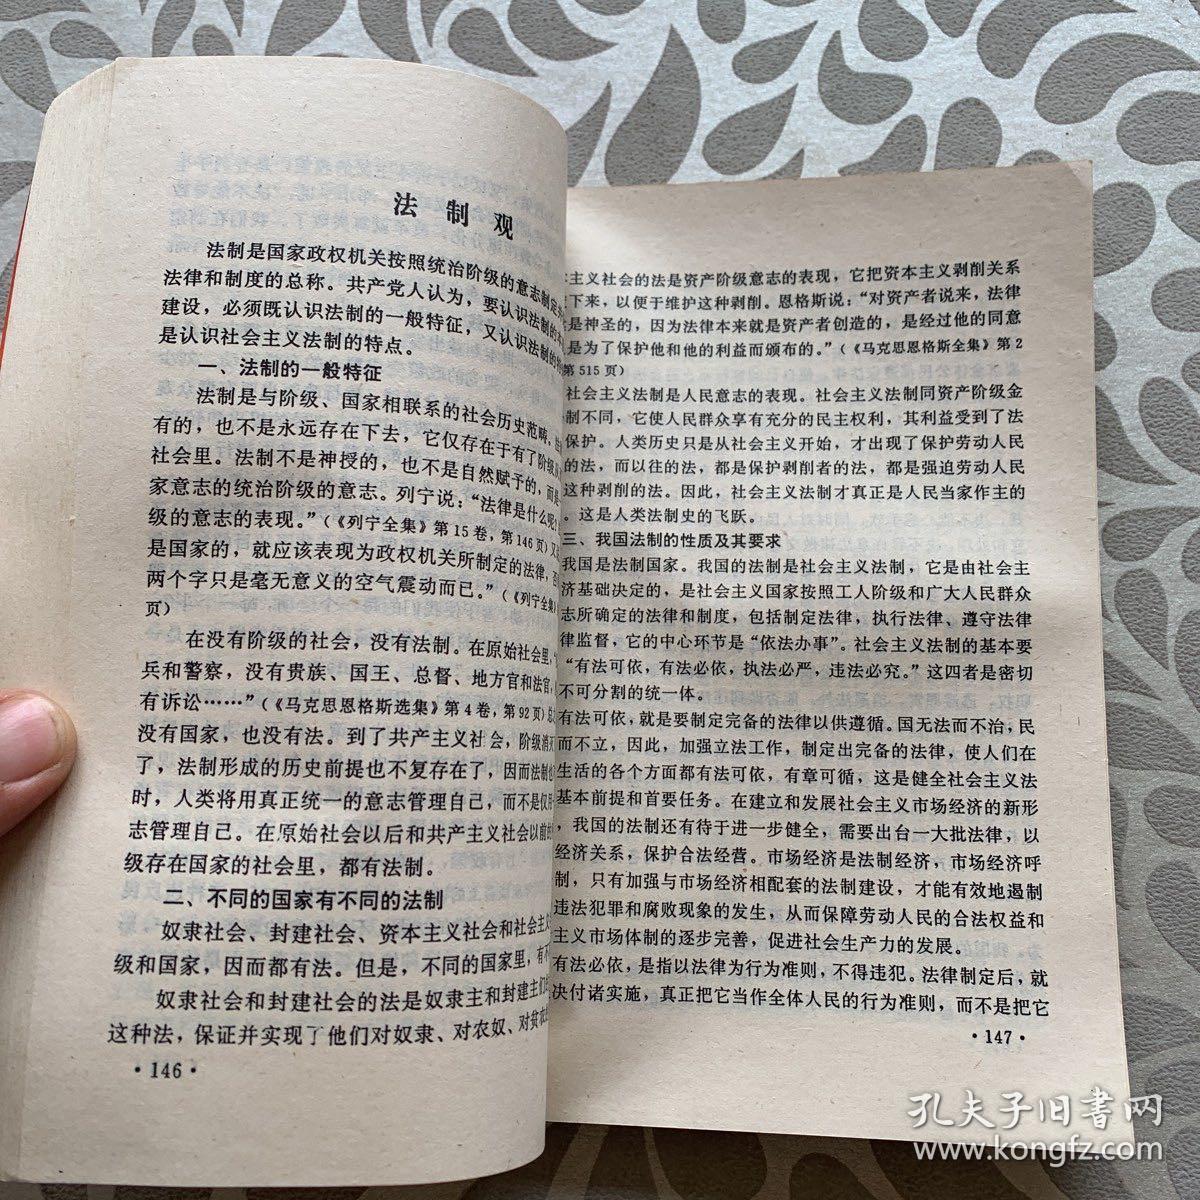 法制观
法制是国家政权机关按照统治阶级的意志制定
法律和制度的总称。共产党人认为，要认识法制的
建设，必须既认识法制的一般特征，又认识法制的
是认识社会主义法制的特点。
一、法制的一般特征
法制是与阶级、国家相联系的社会历史范畴，
有的，也不是永远存在下去，它仅存在于有了阶级
社会里。法制不是神授的，也不是自然赋于的，而是
家意志的统治阶级的意志。列宁说：“法律是什么呢？
级的意志的表现。”（《列宁全集》第15卷，第146页）又
是国家的，就应该表现为政权机关所制定的法律，否
两个字只是毫无意义的空气震动而已。”（《列宁全集》
页）
在没有阶级的社会，没有法制。在原始社会里，“
兵和警察，没有贵族、国王、总督、地方官和法官，
有诉讼……”（《马克思恩格斯选集》第4卷，第92页）总
没有国家，也没有法。到了共产主义社会，阶级消灭
了，法制形成的历史前提也不复存在了，因而法制也
时，人类将用真正统一的意志管理自己，而不是仅
志管理自己。在原始社会以后和共产主义社会以前的
级存在国家的社会里，都有法制。
二、不同的国家有不同的法制
奴隶社会、封建社会、资本主义社会和社会主义
级和国家，因而都有法。但是，不同的国家里，有不
奴隶社会和封建社会的法是奴隶主和封建主们
这种法，保证并实现了他们对奴隶、对农奴、对贫农
·146·
主义社会的法是资产阶级意志的表现，它把资本主义剥削关系
下来，以便于维护这种剥削。恩格斯说：“对资产者说来，法律
是神圣的，因为法律本来就是资产者创造的，是经过他的同意
是为了保护他和他的利益而颁布的。”（《马克思恩格斯全集》第2
第515页）
社会主义法制是人民意志的表现。社会主义法制同资产阶级金
制不同，它使人民群众享有充分的民主权利，其利益受到了法
保护。人类历史只是从社会主义开始，才出现了保护劳动人民
的法，而以往的法，都是保护剥削者的法，都是强迫劳动人民
这种剥削的法。因此，社会主义法制才真正是人民当家作主的
。这是人类法制史的飞跃。
三、我国法制的性质及其要求
我国是法制国家。我国的法制是社会主义法制，它是由社会主
济基础决定的，是社会主义国家按照工人阶级和广大人民群众
志所确定的法律和制度，包括制定法律，执行法律、遵守法律
律监督，它的中心环节是“依法办事”。社会主义法制的基本要
“有法可依，有法必依，执法必严，违法必究。”这四者是密切
不可分割的统一体。
有法可依，就是要制定完备的法律以供遵循。国无法而不治，民
而不立，因此，加强立法工作，制定出完备的法律，使人们在
生活的各个方面都有法可依，有章可循，这是健全社会主义法
基本前提和首要任务。在建立和发展社会主义市场经济的新形
，我国的法制还有待于进一步健全，需要出台一大批法律，以
经济关系，保护合法经营。市场经济是法制经济，市场经济呼
制，只有加强与市场经济相配套的法制建设，才能有效地遏制
违法犯罪和腐败现象的发生，从而保障劳动人民的合法权益和
主义市场体制的逐步完善，促进社会生产力的发展。
有法必依，是指以法律为行为准则，不得违犯。法律制定后，就
决付诸实施，真正把它当作全体人民的行为准则，而不是把它
·147·
孔夫子旧书网
www.kongfz.com